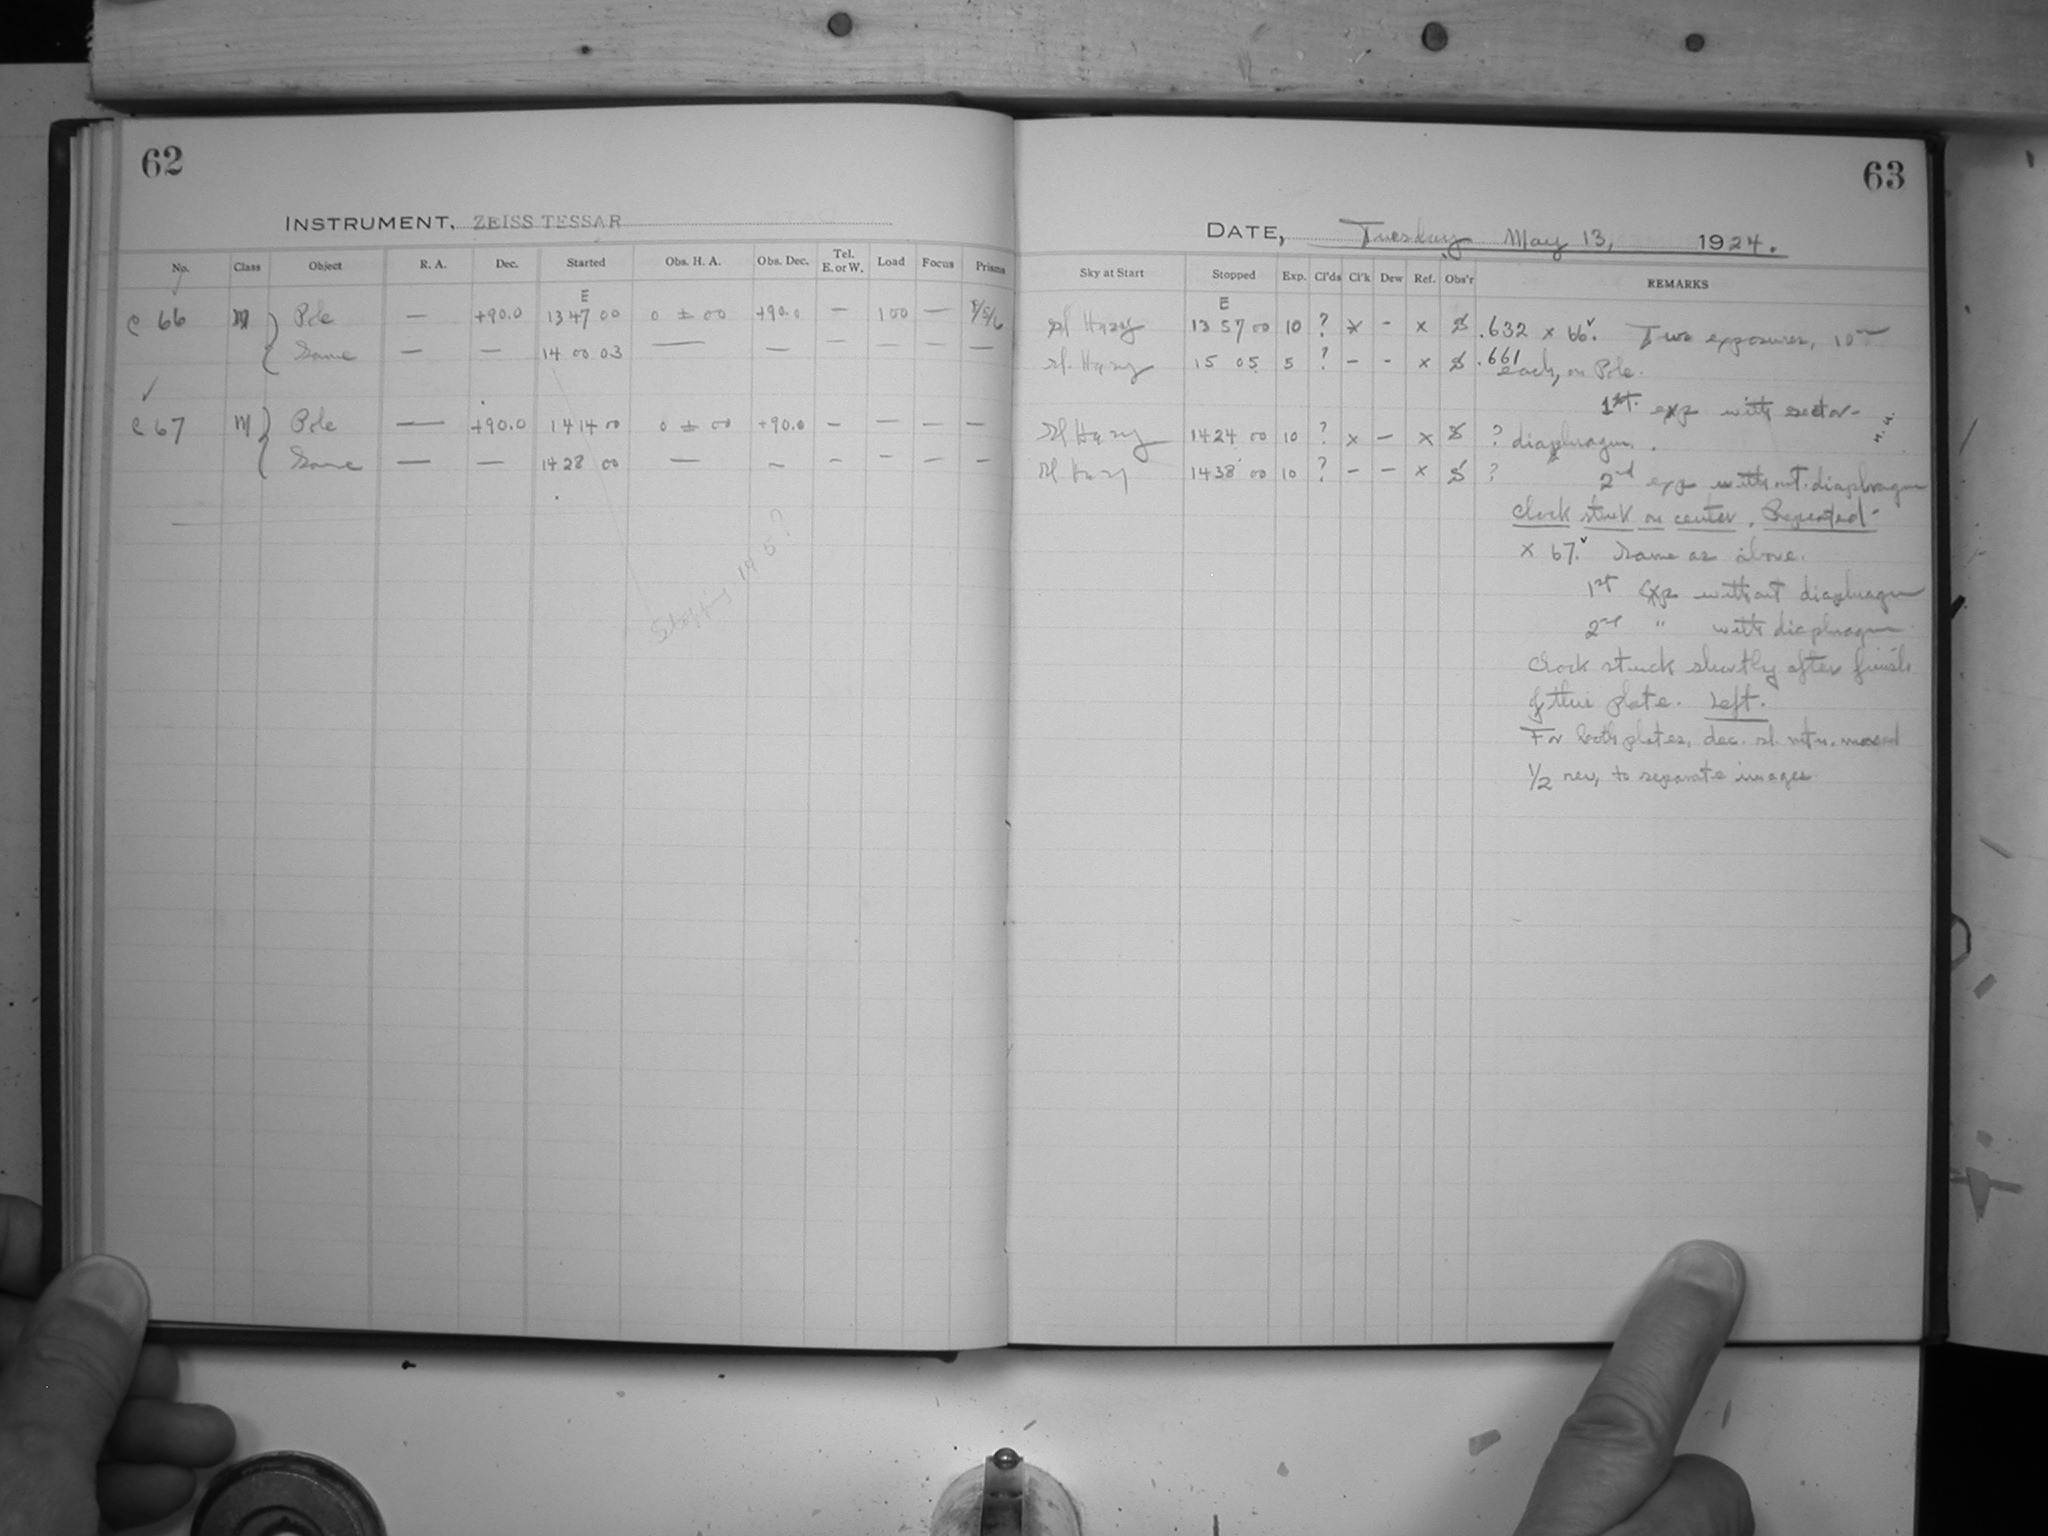 62
INSTRUMENT, ZEISS TESSAR
No. Class Object R. A. Dec. Started Obs. H. A. Obs. Dec. Tel. E. or W. Load Focus Prisms
E
C 66 M Pole — +90.0 13 47 00 0 ± 00 +90.0 — 100 —
Same — — 14 00 03 — — — — — —
✓
C 67 M Pole — +90.0 14 14 00 0 ± 00 +90.0 — — — —
Same — — 14 28 00 — — — — — —
Stopping 14 5?
63
DATE, Tuesday May 13, 1924.
Sky at Start Stopped Exp. Cl'ds Cl'k Dew Ref. Obs'r REMARKS
E
sl Hazy 13 57 00 10 ? x - x S .632 x 66.✓ Two exposures, 10m
sl. Hazy 15 05 5 ? - - x S .661 each, on Pole.
1st. exp with sector-
sl Hazy 14 24 00 10 ? x — x S ? diaphragm.
sl Hazy 14 38 00 10 ? - — x S ? 2nd exp without diaphragm
Clock stuck on center. Repeated
x 67.✓ Same as above.
1st Exp without diaphragm
2nd " with diaphragm
Clock stuck shortly after finish
of this plate. Left.
For both plates, dec. sl. mtn. moved
1/2 rev, to separate images